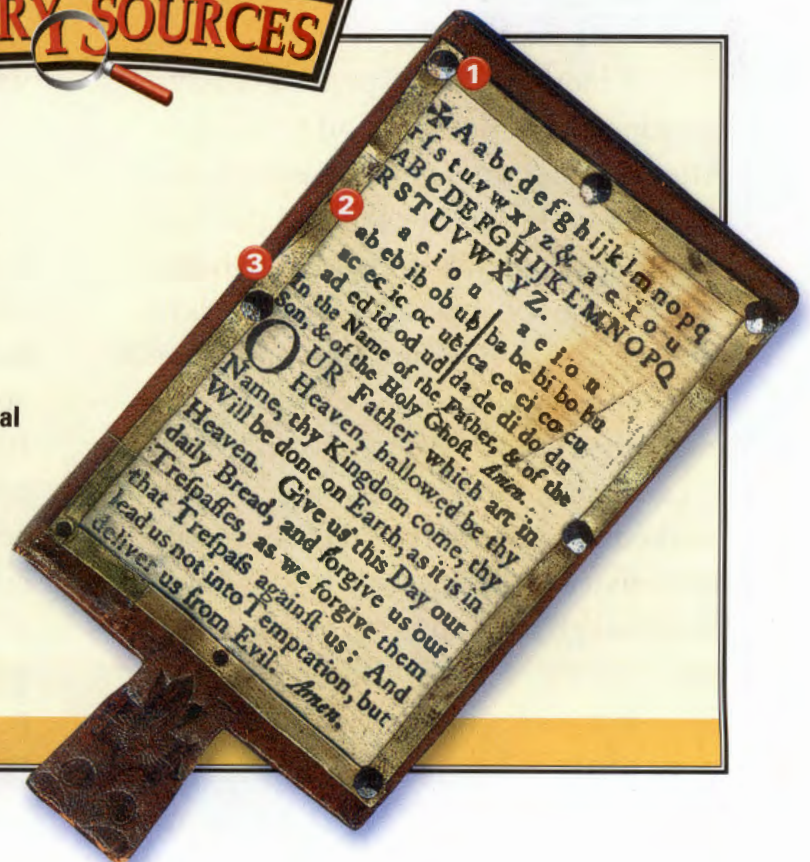 RY SOURCES
1
2
3
al
✠ A a b c d e f g h i j k l m n o p q
r ſ s t u v w x y z & a e i o u
A B C D E F G H I J K L M N O P Q
R S T U V W X Y Z.
a e i o u | a e i o u
ab eb ib ob ub | ba be bi bo bu
ac ec ic oc uc | ca ce ci co cu
ad ed id od ud | da de di do du
In the Name of the Father, & of the
Son, & of the Holy Ghoſt. Amen.
OUR Father, which art in
Heaven, hallowed be thy
Name, thy Kingdom come, thy
Will be done on Earth, as it is in
Heaven. Give us this Day our
daily Bread, and forgive us our
Treſpaſſes, as we forgive them
that Treſpaſs againſt us : And
lead us not into Temptation, but
deliver us from Evil. Amen.